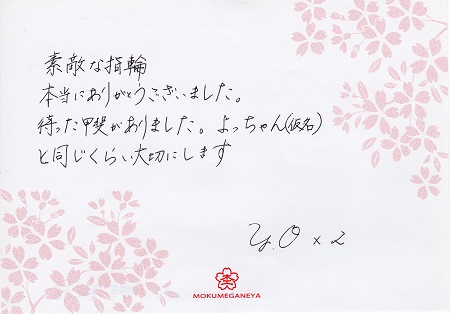 素敵な指輪
本当にありがとうございました。
待った甲斐がありました。よっちゃん(仮名)
と同じくらい大切にします
Y.O × 2
MOKUMEGANEYA